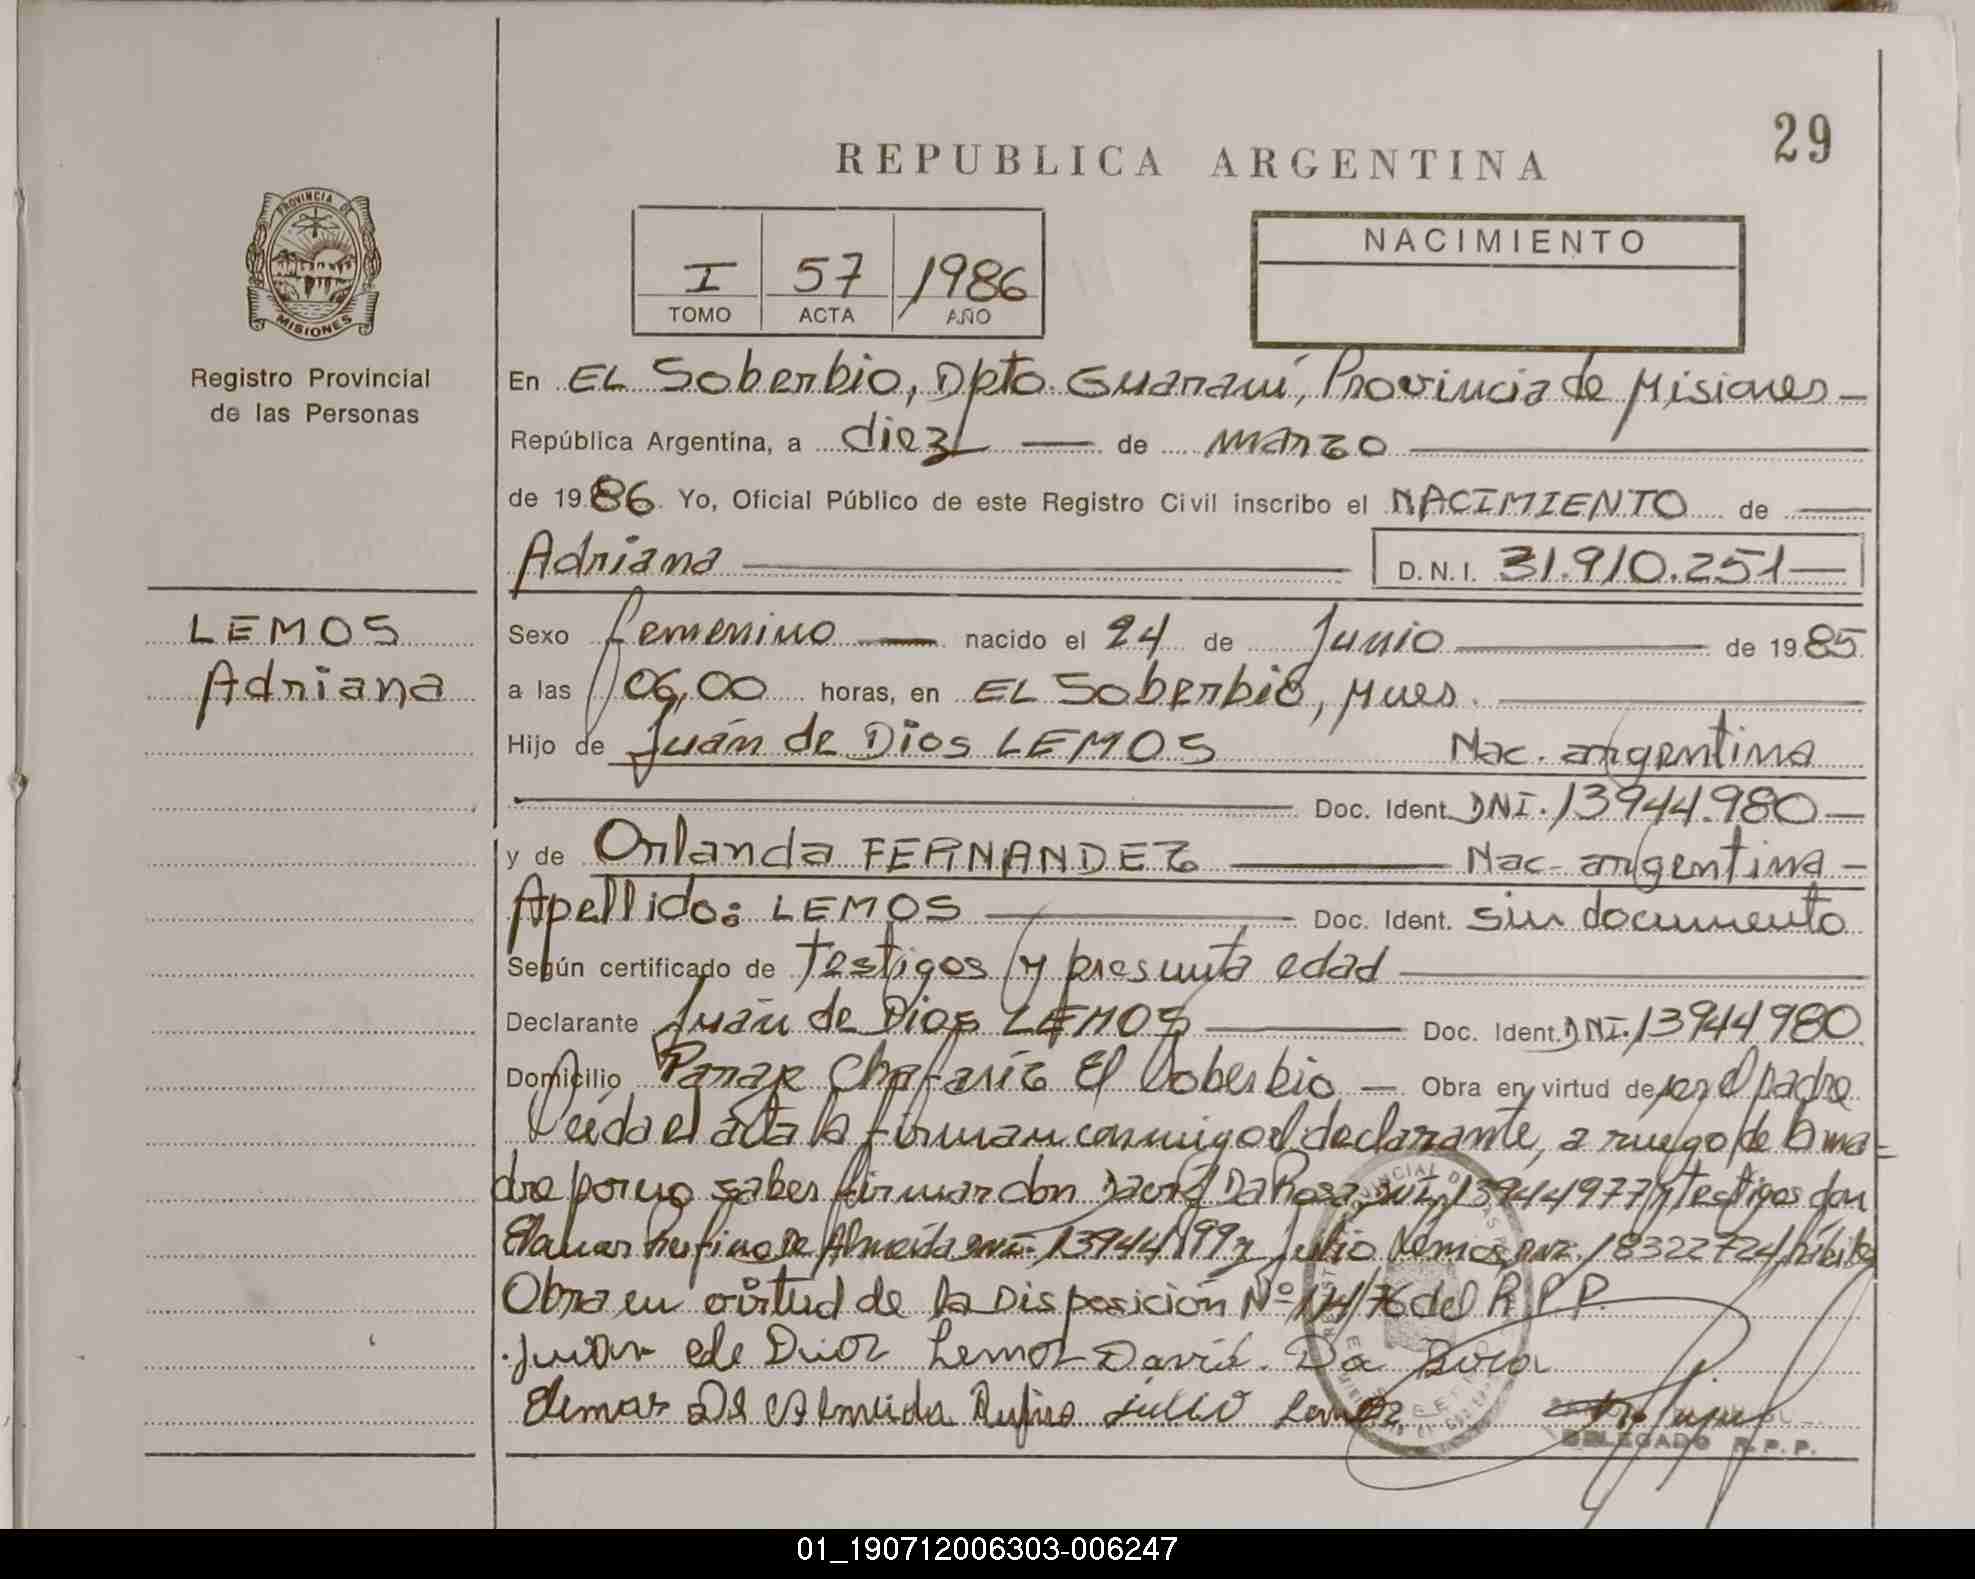 29
REPUBLICA ARGENTINA
PROVINCIA DE
MISIONES
Registro Provincial
de las Personas
I 57 1986
TOMO ACTA AÑO
NACIMIENTO
En EL Soberbio, Dpto. Guaraní, Provincia de Misiones -
República Argentina, a diez de marzo
de 1986. Yo, Oficial Público de este Registro Civil inscribo el NACIMIENTO de
Adriana D.N.I. 31.910.251
LEMOS
Adriana
Sexo femenino nacido el 24 de Junio de 1985
a las 06,00 horas, en EL Soberbio, Mnes.
Hijo de Juán de Dios LEMOS Nac. argentina
Doc. Ident. DNI. 13944.980
y de Orlanda FERNANDEZ Nac- argentina -
Apellido: LEMOS Doc. Ident. sin documento
Según certificado de testigos y presunta edad
Declarante Juán de Dios LEMOS Doc. Ident. DNI. 13944980
Domicilio El Soberbio - Obra en virtud de ser el padre
Leida el acta la firman conmigo el declarante, a ruego de la ma-
dre por no saber firmar don David Da Rosa DNI. 13944977 y testigos don
Rufino De Almeida DNI. y Julio Lemos DNI. 18322724 hábiles
Obra en virtud de la Disposición Nº 174/76 del R.P.P.
Juan de Dios Lemos David. Da Rosa
Elmar De Almeida Rufino Julio Lemos
DELEGADO R.P.P.
01_190712006303-006247